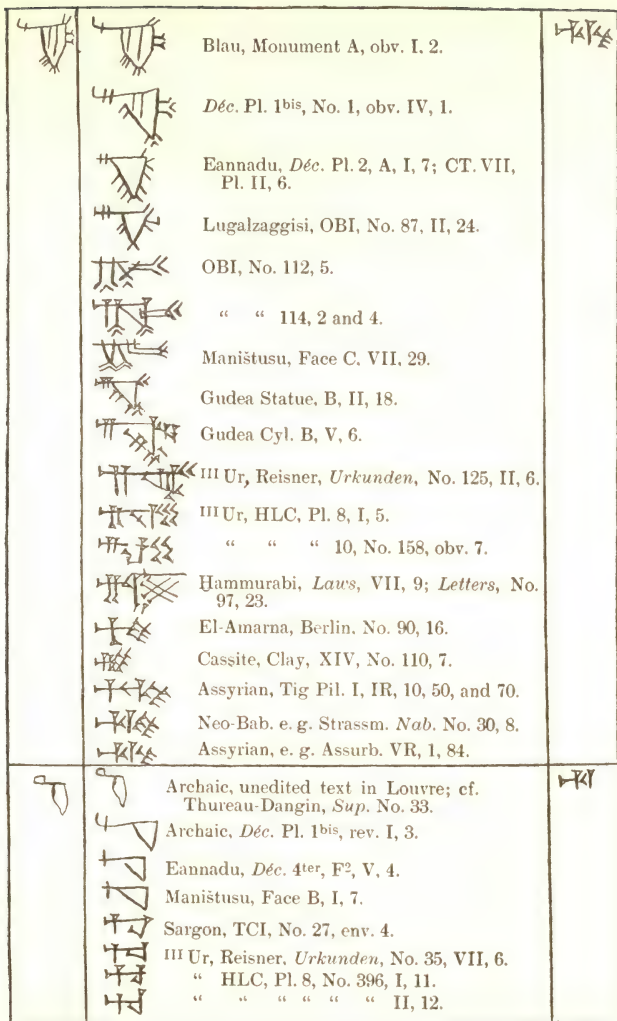 Blau, Monument A, obv. I, 2.
Déc. Pl. 1bis, No. 1, obv. IV, 1.
Eannadu, Déc. Pl. 2, A, I, 7; CT. VII,
Pl. II, 6.
Lugalzaggisi, OBI, No. 87, II, 24.
OBI, No. 112, 5.
“ “ 114, 2 and 4.
Maništusu, Face C, VII, 29.
Gudea Statue, B, II, 18.
Gudea Cyl. B, V, 6.
III Ur, Reisner, Urkunden, No. 125, II, 6.
III Ur, HLC, Pl. 8, I, 5.
“ “ “ 10, No. 158, obv. 7.
Ḫammurabi, Laws, VII, 9; Letters, No.
97, 23.
El-Amarna, Berlin, No. 90, 16.
Cassite, Clay, XIV, No. 110, 7.
Assyrian, Tig Pil. I, IR, 10, 50, and 70.
Neo-Bab. e. g. Strassm. Nab. No. 30, 8.
Assyrian, e. g. Assurb. VR, 1, 84.
Archaic, unedited text in Louvre; cf.
Thureau-Dangin, Sup. No. 33.
Archaic, Déc. Pl. 1bis, rev. I, 3.
Eannadu, Déc. 4ter, F2, V, 4.
Maništusu, Face B, I, 7.
Sargon, TCI, No. 27, env. 4.
III Ur, Reisner, Urkunden, No. 35, VII, 6.
“ HLC, Pl. 8, No. 396, I, 11.
“ “ “ “ “ “ II, 12.